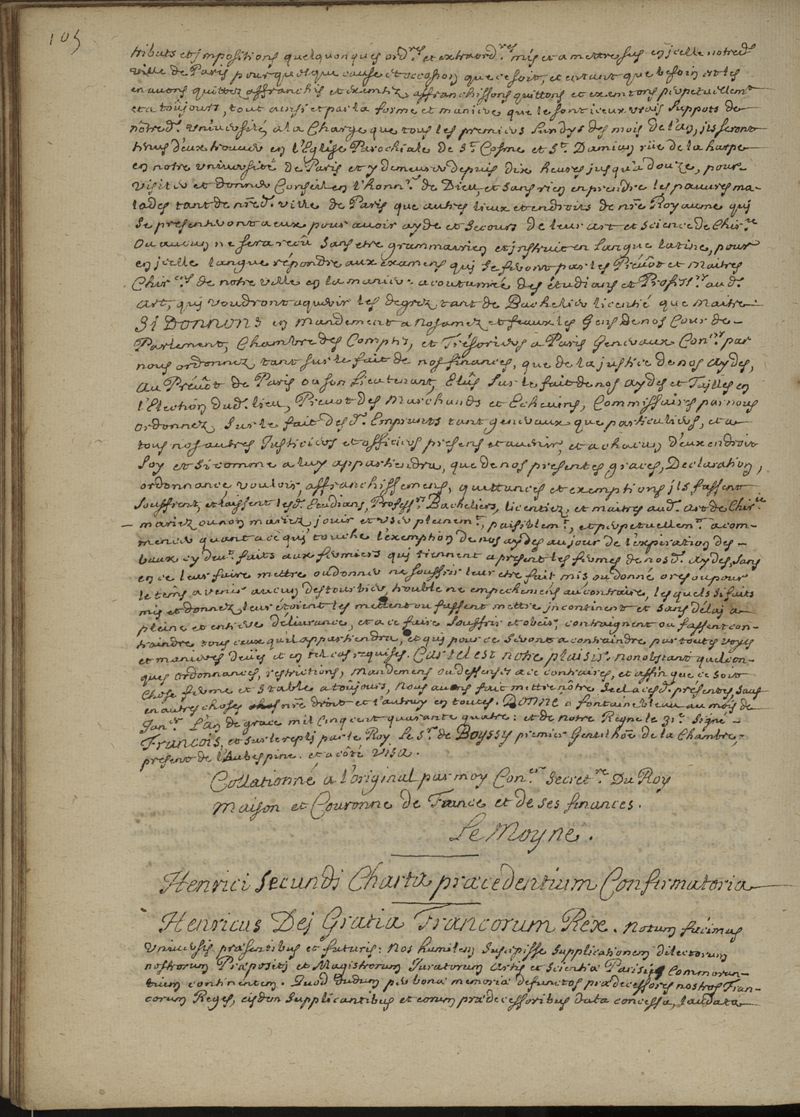 105
tributs et impositions quelquonques ord.res et extraord.res mis et a mettre sus en icelle notred.
ville de Paris pour quoi que cause et occasion que ce soit, et en tant que besoin est les
en avons quitté affranchis et exemptz, affranchissons quittons et exemtons perpetuellement
et a toujours, tout ainsi et par la forme et maniere que le sont iceux vrais suppots de
notred. université, a la charge que tous les premiers lundys des mois de l'an, ils seront
tenus d'eux trouver en l'Eglise Parochiale de St. Cosme et St. Damien rüe de la harpe
en notre université de Paris et y demeurer depuis dix heures jusqu'a douze, pour
visiter et donner Conseil en l'honn.r de Dieu, et sans rien en prendre les pauvres ma-
lades tant de nred. ville de Paris que autres lieux et endroits de nre Royaume qui
se presenteront a eux pour avoir ayde et secours de leur art et science de Chir.ie
Ou aucun ne sera recû sans etre grammairien et instruit en langue latine, pour
en icelle langue répondre aux examens qui se feront par les Prevot et Maitres
Chir.ens de notre ville en la maniere acoutumée des étudians et Profess.rs aud.
art, qui voudront aquerir les degrez tant de Bachelier licentié que Maitre.
Si Donnons en mandement a nos amez et feaux les Gens de nos Cour de
Parlement, Chambre des Compt.s, et Trésoriers a Paris Generaux Con.ers par
nous ordonnez tant sur le fait de nos finances, que de la justice de nos aydes,
Au Prévôt de Paris ou son Lieutenant, Elûs sur le fait de nos aydes et Tailles en
l'Election dud. lieu, Prevot des Marchands et Echevins, Commissaires par nous
ordonnez sur le fait desd. Emprunts tant generaux que particuliers, et a
tous nos autres Justiciers et officiers presens et avenir, et a chacun d'eux endroit
soy et si comme a luy appartiendra, que de nos presentes graces, Declaration,
ordonnance, vouloir, affranchissemens, quittances et exemptions ils fassent
souffrent, et laissent lesd. Etudians, Profess.rs Bacheliers, licentiez, et maitres aud. art de Chir.ie
mariez ou non mariez, jouir et user pleinem.t, paisiblem.t, et perpetuellem.t a com-
mencer quant a ce qui touche l'exemption de nos aydes au jour de l'expiration des
baux cy dev.t faits aux fermiers qui tiennent a present les fermes de nosd. aydes, sans
en ce leur faire mettre ou donner ne souffrir leur etre fait mis ou donné ores ou pour
le tems a venir aucun destourbier, trouble ne empechemens au contraire, lesquels si faits
mis et donnez leur étoient les mettent ou fassent mettre incontinent et sans delai a
pleine et entiere delivrance, et a ce faire souffrir et obeir, contraignent ou fassent con-
traindre tous ceux qu'il appartiendra, et qui pour ce seront a contraindre par toutes voyes
et manieres deües et en tel cas requises. Car tel est notre plaisir. nonobstant quelcon-
ques ordonnances, restrictions, mandemens ou deffenses a ce contraires, et affin que ce soit
chose ferme et stable a toujours, Nous avons fait mettre notre Scel a cesd. presentes, sauf
en autres choses nre droit et l'autruy en toutes. DONNÉ a fontainebleau au mois de
Janv.r L'an de grace mil Cinq cent quarante quatre : et de notre Regne le 31.e Signé
François, et sur le repli par le Roy Le Sr. de Boyssy premier Gentilhôe de la Chambre,
present de l'Aubespine. et a côté VISA.
Collationné a l'original par moy Con.er Secret.re Du Roy
Maison et Couronne de France et de ses finances.
Le Moyne.
Henrici Secundi Charta præcedentium Confirmatoria
Henricus Dei Gratia Francorum Rex. Notum facimus
Universis præsentibus et futuris: Nos humilem Suscepisse supplicationem dilectorum
nostrorum Præpositi et Magistrorum Juratorum artis et Scientiæ Parisiis Commoran-
tium continentem. Quod dudum per bonæ memoriæ defunctos prædecessores nostros Fran-
corum Reges, eisdem Supplicantibus et eorum prædecessoribus data concessa, laudata